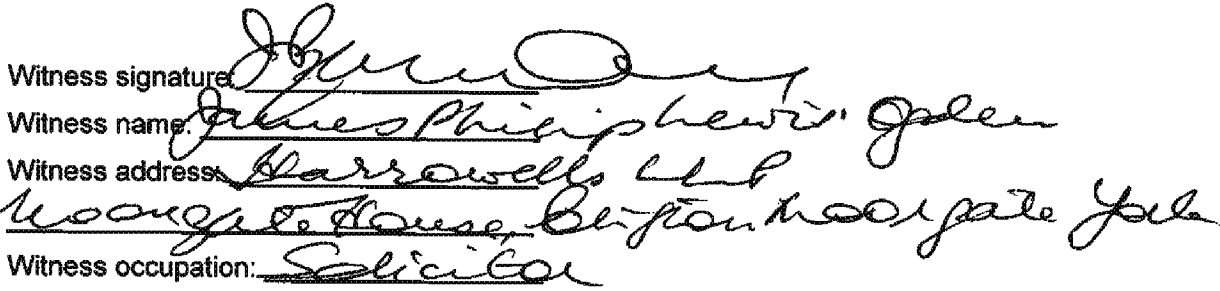 Witness signature:
Witness name: James Philip Lewis Ogden
Witness address: Harrowells LLP
Moorgate House, Clifton Moorgate York
Witness occupation: Solicitor